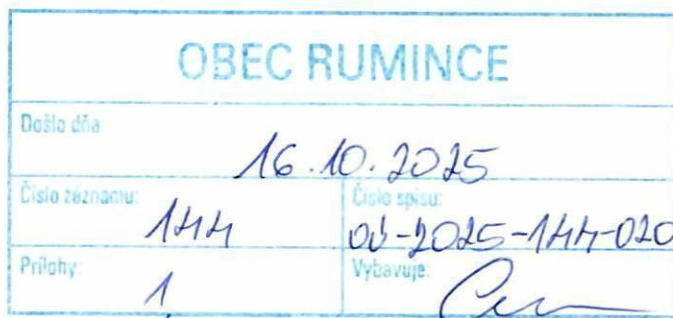 OBEC RUMINCE
Došlo dňa:
16.10.2025
Číslo záznamu: Číslo spisu:
144 OÚ-2025-144-020
Prílohy: Vybavuje:
1